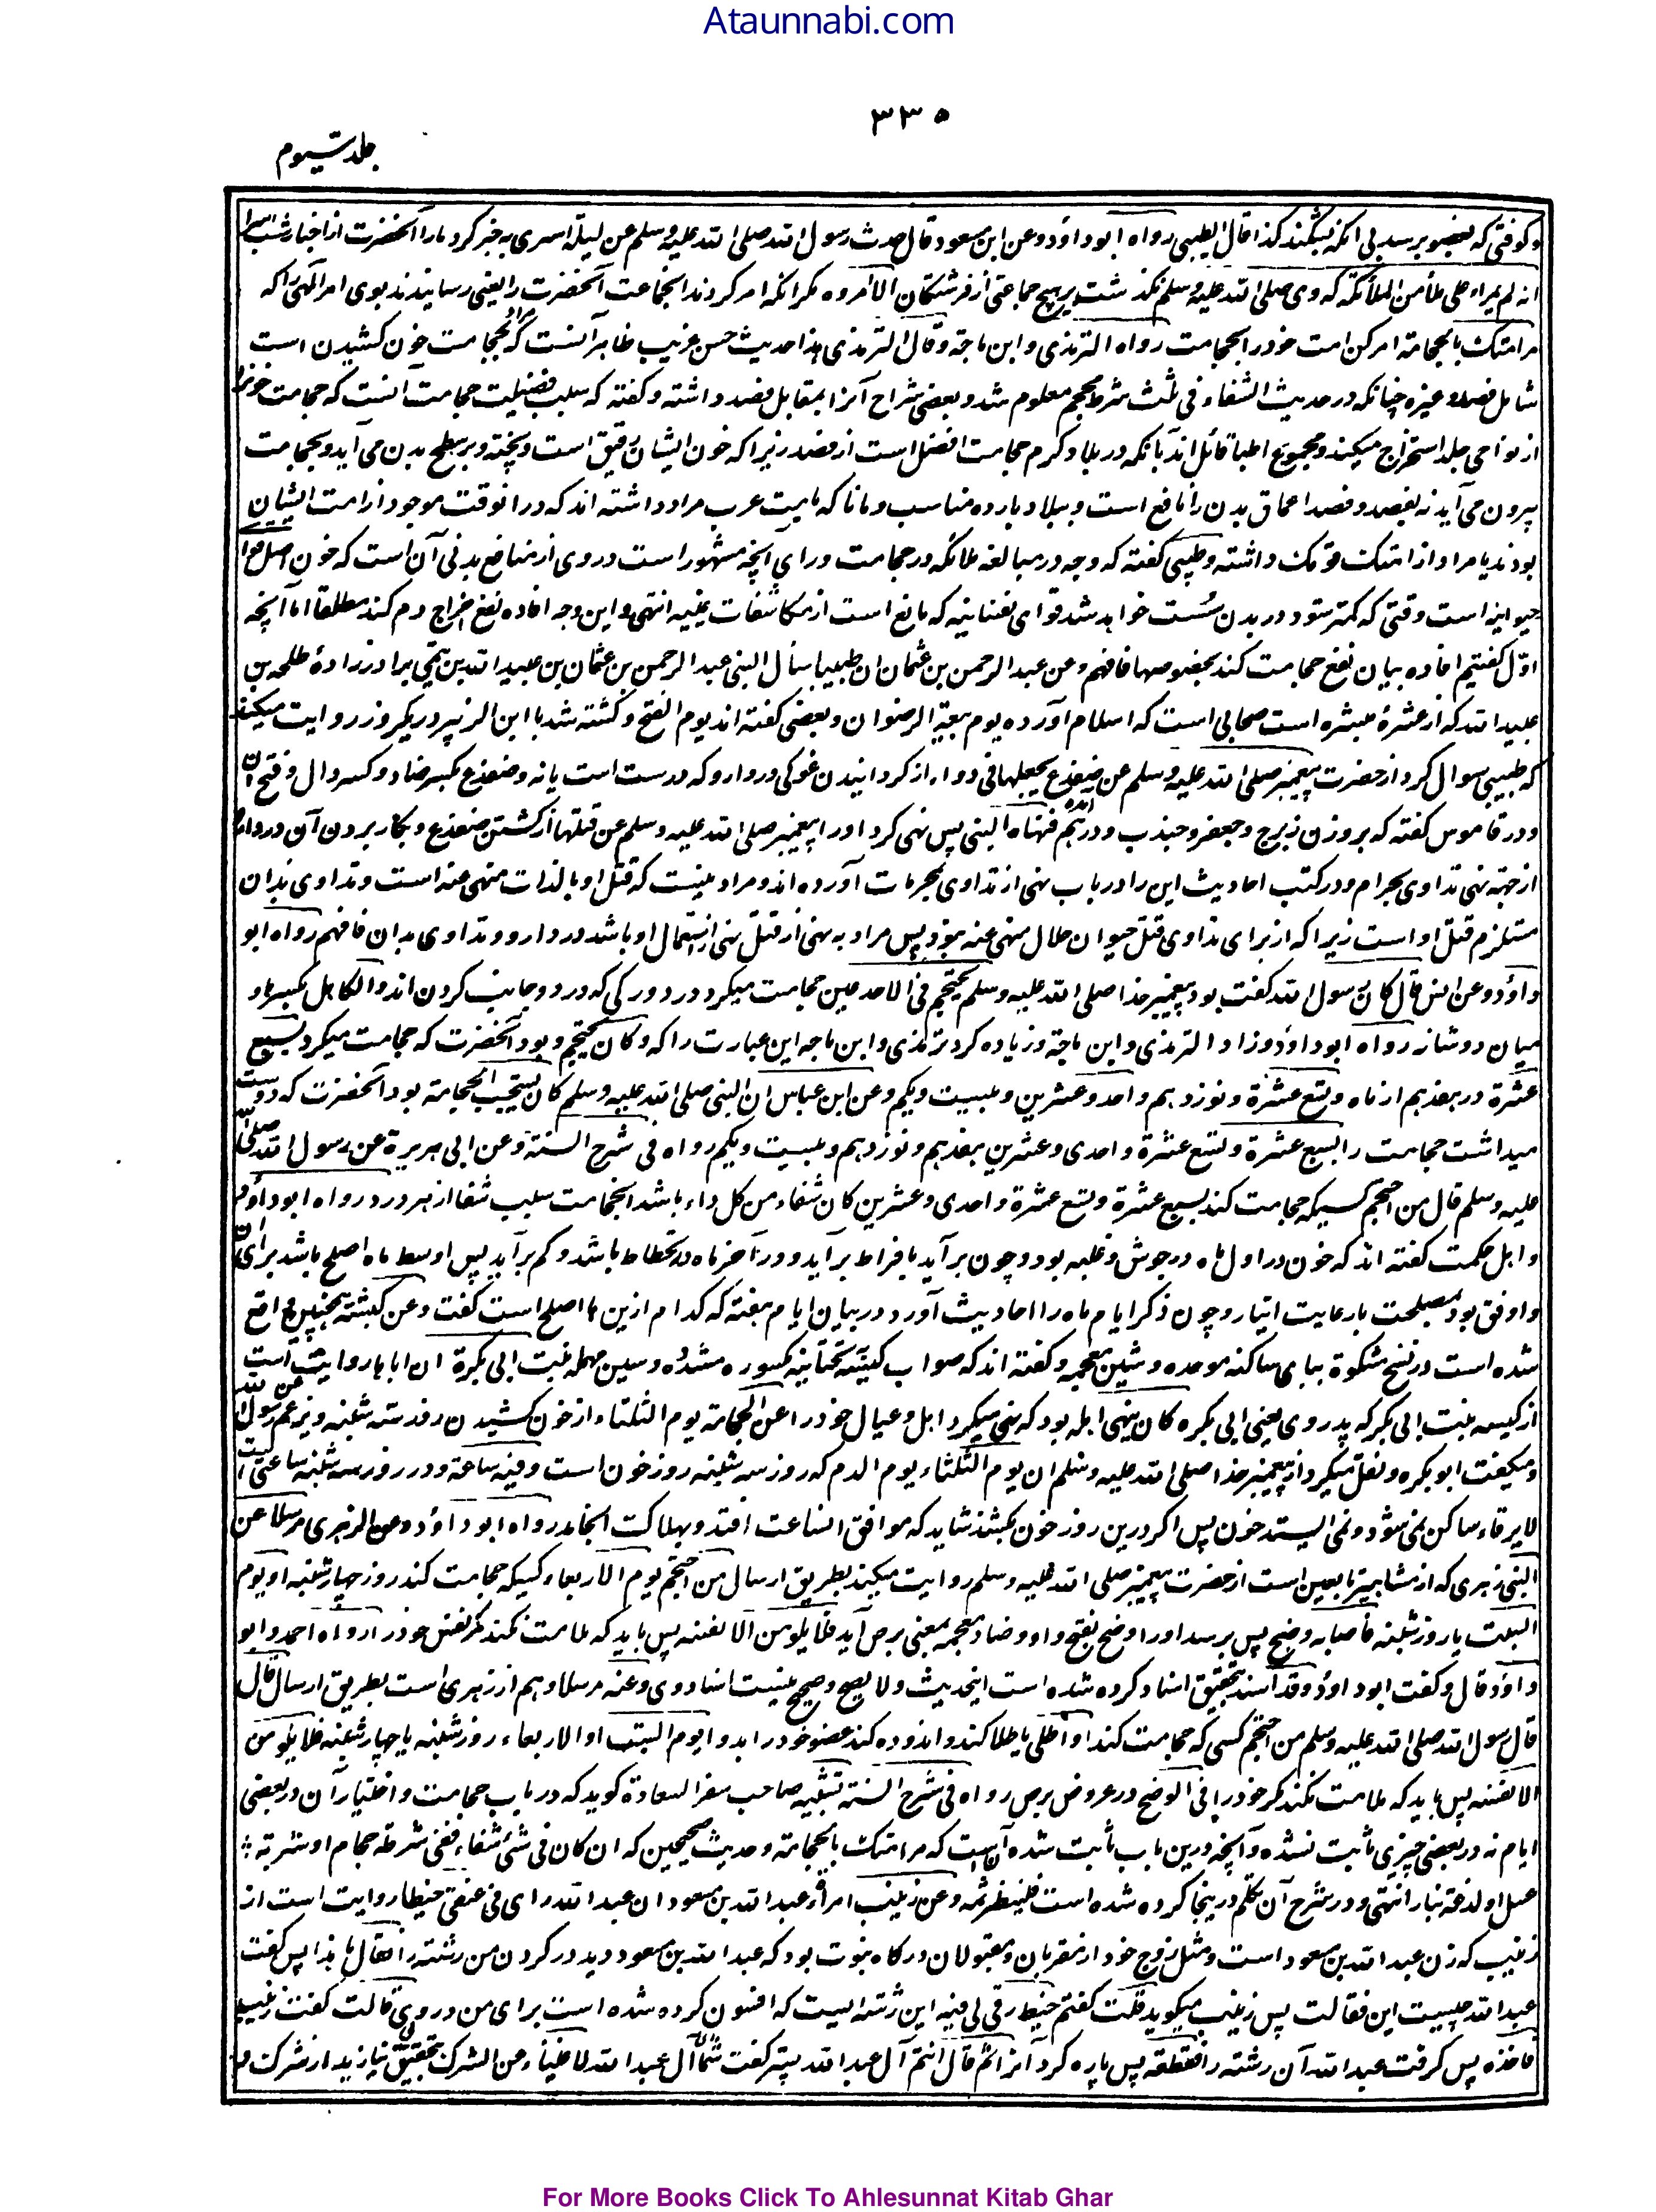 Ataunnabi.com
۳۳۵
جلد سیوم
وکوفتی که بعضو برسد بی انکه بشکند کذا قال الطیبی رواه ابوداؤد وعن ابن مسعود قال حدث رسول الله صلی الله علیه وسلم عن لیلة اسری به خبر کرد ما را آنحضرت از اخبار شب اسرا
انه لم یمر علی ملأ من الملائکة که وی صلی الله علیه وسلم نگذشت بر هیچ جماعتی از فرشتگان الا امروه مگر انکه امر کردند انجماعت آنحضرت را یعنی رسانیدند بوی امر الهی را که
مر امتک بالحجامة امر کن امت خود را بحجامت رواه الترمذی وابن ماجة وقال الترمذی هذا حدیث حسن غریب ظاهر آنست که مراد بحجامت خون کشیدن است
شامل فصد وغیره چنانکه در حدیث الشفاء فی ثلث شرطة محجم معلوم شد وبعضی شراح آنرا بمقابل فصد داشته وگفته که سبب فضیلت حجامت آنست که حجامت خونرا
از نواحی جلد استخراج میکند ومجموع اطبا قائل اند بآنکه در بلاد گرم حجامت افضل است از فصد زیرا که خون ایشان رقیق است وپخته وبر سطح بدن می آید وبحجامت
بیرون می آید نه بفصد وفصد اعماق بدن را نافع است وببلاد بارده مناسب ومانا که بامت عرب مراد داشته اند که درانوقت موجود از امت ایشان
بودند یا مراد از امتک قومک داشته وطیبی گفته که وجه در مبالغه ملائکه در حجامت ورای آنچه مشهور است در وی از منافع بدنی آن است که خون اصل قوا
حیوانیه است وقتی که کمتر شود در بدن سست خواهد شد قوای نفسانیه که مانع است از مکاشفات غیبیه انتهی واین وجه افاده نفع اخراج دم کند مطلقا اما آنچه
اوّل گفتیم افاده بیان نفع حجامت کند بخصوصها فافهم وعن عبد الرحمن بن عثمان ان طبیبا سأل النبی عبد الرحمن بن عثمان بن عبید الله بن تیمی برادر زادهٔ طلحه بن
عبید الله که از عشرهٔ مبشره است صحابی است که اسلام آورده یوم بیعة الرضوان وبعضی گفته اند یوم الفتح وکشته شد با ابن الزبیر در یکروز روایت میکند
که طبیبی سوال کرد از حضرت پیغمبر صلی الله علیه وسلم عن ضفدع یجعلها فی دواء از گردانیدن غوکی در دارو که درست است یا نه وضفدع بکسر ضاد وکسر دال وفتح آن
ودر قاموس گفته که بروزن زبرج وجعفر وجندب ودرهم آمده فنهاه النبی پس نهی کرد او را پیغمبر صلی الله علیه وسلم عن قتلها از کشتن ضفدع وبکار بردن آن در دوا
از جهة نهی تداوی بحرام ودر کتب احادیث این را در باب نهی از تداوی بمحرمات آورده اند ومراد نیست که قتل او بالذات منهی عنه است وتداوی بدان
مستلزم قتل او است زیرا که از برای تداوی قتل حیوان حلال منهی عنه نبود پس مراد به نهی از قتل نهی از استعمال او باشد در دارو وتداوی بدان فافهم رواه ابو
داؤد وعن انس قال کان رسول الله گفت بود پیغمبر خدا صلی الله علیه وسلم یحتجم فی الاخدعین حجامت میکرد در دو رگی که در دو جانب گردن اند والکاهل بکسر هاء و
میان دو شانه رواه ابوداؤد وزاد الترمذی وابن ماجة وزیاده کرد ترمذی وابن ماجه این عبارت را که وکان یحتجم وبود آنحضرت که حجامت میکرد بسبع
عشرة در هفدهم از ماه وتسع عشرة ونوزدهم واحد وعشرین وبیست ویکم وعن ابن عباس ان النبی صلی الله علیه وسلم کان یستحب الحجامة بود آنحضرت که دوست
میداشت حجامت را بسبع عشرة وتسع عشرة واحدی وعشرین هفدهم ونوزدهم وبیست ویکم رواه فی شرح السنة وعن ابی هریرة عن رسول الله صلی الله
علیه وسلم قال من احتجم کسیکه حجامت کند بسبع عشرة وتسع عشرة واحدی وعشرین کان شفاء من کل داء باشد انحجامت سبب شفا از هر درد رواه ابوداؤد
واهل حکمت گفته اند که خون در اول ماه در جوش وغلبه بود وچون برآید بافراط برآید ودر آخر ماه در انحطاط باشد وکم برآید پس اوسط ماه اصلح باشد برای آن
واوفق بود بمصلحت بارعایت ایتار وچون ذکر ایام ماه را احادیث آورد در بیان ایام هفته که کدام ازین ها اصلح است گفت وعن کبشة همچنین واقع
شده است در نسخ مشکوة ببای ساکنه موحده وشین معجمه وگفته اند که صواب کیّسه بتحتانیه مکسوره مشدّده وسین مهمله بنت ابی بکرة ان اباها روایت است
از کیسه بنت ابی بکر که پدر وی یعنی ابی بکره کان ینهی اهله بود که نهی میکرد اهل وعیال خود را عن الحجامة یوم الثلثاء از خون کشیدن روز سه شنبه ویزعم عن رسول الله
ومیگفت ابو بکره ونقل میکرد از پیغمبر خدا صلی الله علیه وسلم ان یوم الثلثاء یوم الدم که روز سه شنبه روز خون است وفیه ساعة ودر روز سه شنبه ساعتی است
لا یرقاء ساکن نمی شود ونمی ایستد خون پس اگر درین روز خون بکشند شاید که موافق انساعت افتد وبهلاکت انجامد رواه ابو داؤد وعن الزهری مرسلا عن
النبی زهری که از مشاهیر تابعین است از حضرت پیغمبر صلی الله علیه وسلم روایت میکند بطریق ارسال من احتجم یوم الاربعاء کسیکه حجامت کند روز چهارشنبه او یوم
السبت یا روز شنبه فاصابه وضح پس برسد او را وضح بفتح واو وضاد معجمه بمعنی برص آید فلا یلومن الا نفسه پس باید که ملامت نکند مگر نفس خود را رواه احمد وابو
داؤد وقال وگفت ابو داؤد وقد اسند بتحقیق اسناد کرده شده است اینحدیث ولا یصح وصحیح نیست اسناد وی وعنه مرسلا وهم از زهری است بطریق ارسال قال
قال رسول الله صلی الله علیه وسلم من احتجم کسی که حجامت کند او اطلی یا طلا کند واندوده کند عضو خود را بدوا یوم السبت او الاربعاء روز شنبه یا چهارشنبه فلا یلومن
الا نفسه پس باید که ملامت نکند مگر خود را فی الوضح در عروض برص رواه فی شرح السنة تنبیه صاحب سفر السعادة گوید که در باب حجامت واختیار آن در بعضی
ایام نه در بعضی چیزی ثابت نشده وآنچه درین باب ثابت شده آنست که مر امتک بالحجامة وحدیث صحیحین که ان کان فی شئ شفاء ففی شرطة حجام او شربة
عسل او لذعة بنار انتهی ودر شرح آن تکلم در ینجا کرده شده است فلینظر ثمه وعن زینب امرأة عبد الله بن مسعود ان عبد الله رای فی عنقی خیطا روایت است از
زینب که زن عبد الله بن مسعود است ومثل زوج خود از مقربان ومقبولان درگاه نبوت بود که عبد الله بن مسعود دید در گردن من رشته را فقال ما هذا پس گفت
عبد الله چیست این فقالت پس زینب میگوید قلت گفتم خیط رقی لی فیه این رشته ایست که افسون کرده شده است برای من در وی قالت گفت زینب
فاخذه پس گرفت عبد الله آن رشته را فقطعه پس پاره کرد آنرا ثم قال انتم آل عبد الله پستر گفت شما ای آل عبد الله لاغنیاء عن الشرک بتحقیق بی نیازید از شرک
For More Books Click To Ahlesunnat Kitab Ghar